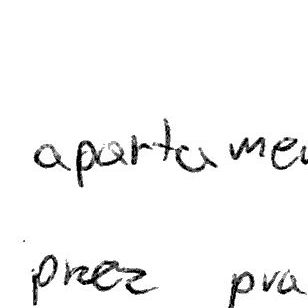 apartame
przez pra